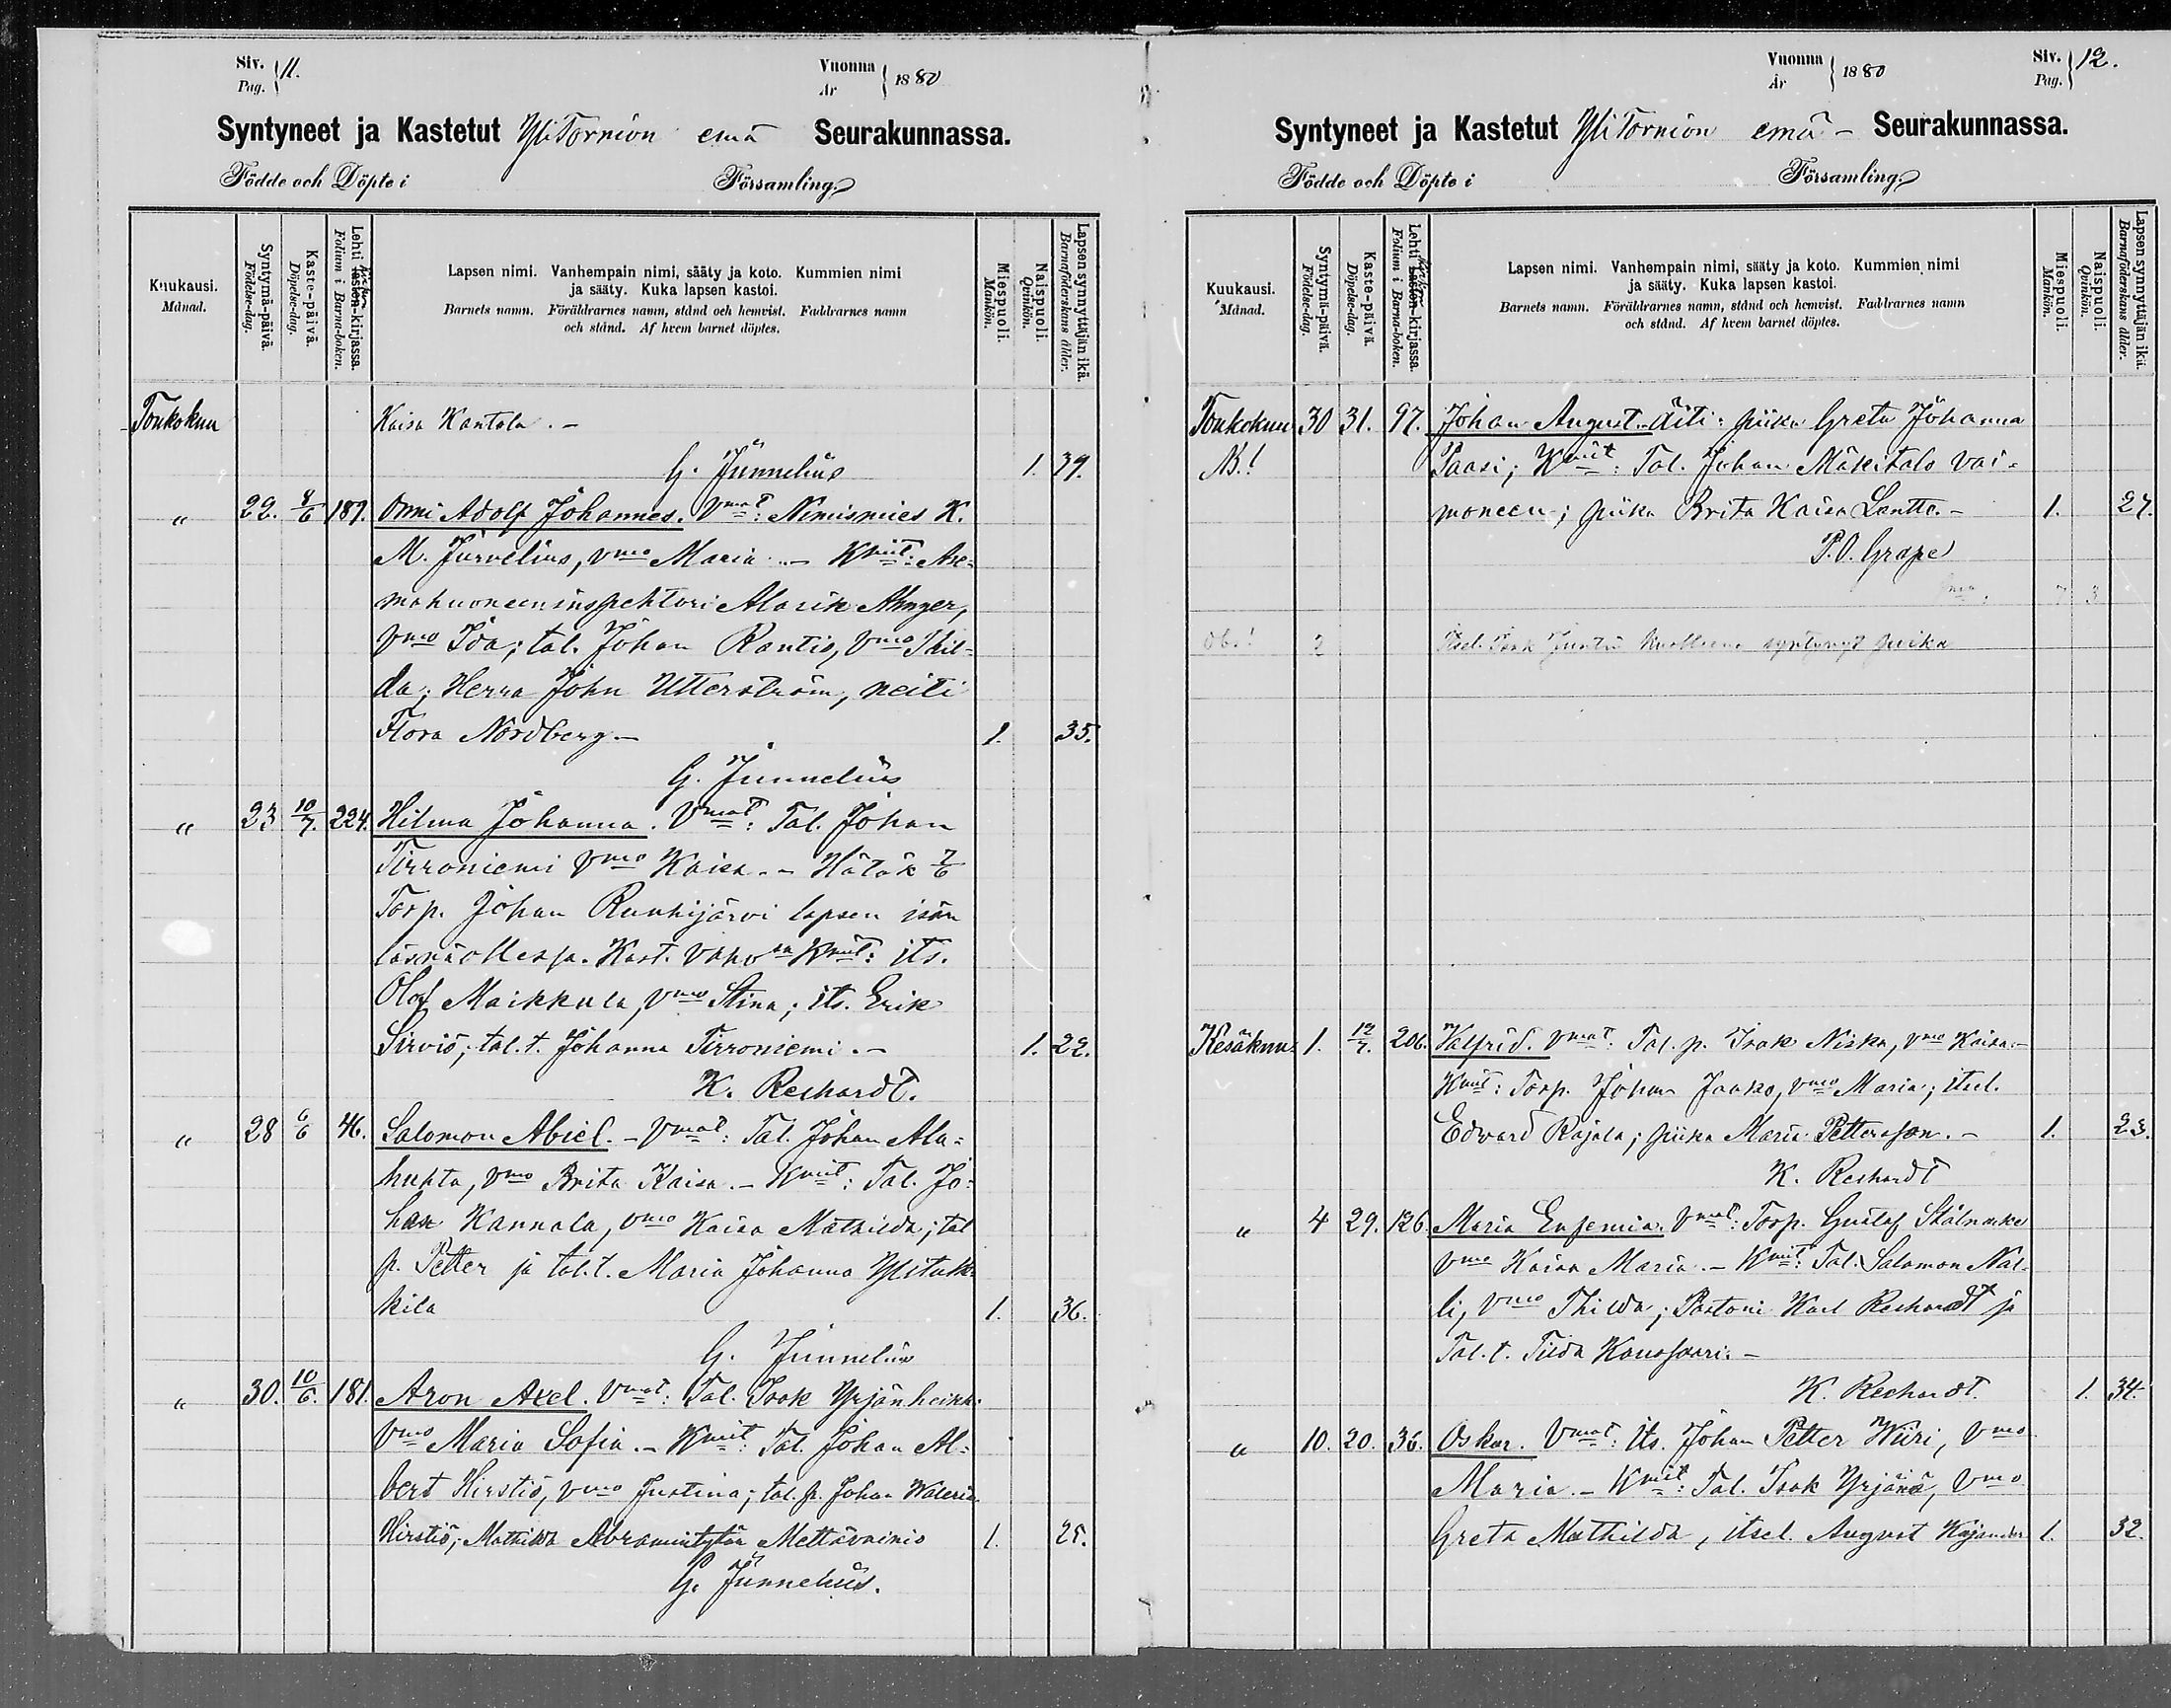 Siv. Pag. 11.
Vuonna År 1880
Syntyneet ja Kastetut YliTornion emä Seurakunnassa.
Födde och Döpte i Församling.
Kuukausi. Månad.
Syntymä-päivä. Födelse-dag.
Kaste-päivä. Döpelse-dag.
Lehti lasten-kirjassa. Folium i Barna-boken.
Lapsen nimi. Vanhempain nimi, sääty ja koto. Kummien nimi
ja sääty. Kuka lapsen kastoi.
Barnets namn. Föräldrarnes namn, stånd och hemvist. Faddrarnes namn
och stånd. Af hvem barnet döptes.
Miespuoli. Mankön.
Naispuoli. Qvinkön.
Lapsen synnyttäjän ikä. Barnaföderskans ålder.
Toukokuu Kaisa Kantola. –
G. Junnelius 1. 39.
" 22. 8/6 187. Onni Adolf Johannes. Vmat: Nimismies K.
M. Jurvelius, vmo Maria. – Kmit: Ase-
mahuoneeninspehtori Alarik Almger,
vmo Ida; tal. Johan Rantio, vmo Thil-
da; Herra John Utterström, neiti
Flora Nordberg. – 1. 35.
G. Junnelius
" 23 10/7. 224. Hilma Johanna. Vmat: Tal. Johan
Tirroniemi vmo Kaisa. – Hätäk 7/6
Torp. Johan Ruuhijärvi lapsen isän
läsnäollessa. Kast. vahv Kmit: its.
Olof Maikkula, vmo Stina; its. Erik
Sirviö; tal.t. Johanna Tirroniemi. – 1. 22.
K. Rechardt.
" 28 6/6 46. Salomon Abiel. – Vmat: Tal. Johan Ala-
huhta, vmo Brita Kaisa. – Kmit: Tal. Jo-
han Kannala, vmo Kaisa Mathilda; tal
p. Petter ja tal.t. Maria Johanna Ylituk-
kila 1. 36.
G. Junnelius
" 30. 10/6. 181. Aron Axel. Vmat: Tal. Isak Yrjänheikki
Vmo Maria Sofia. – Kmit: Tal. Johan Al-
bert Hirstiö, vmo Justina; tal. p. Johan Waleria
Hirstiö; Mathilda Abramintytär Mettävainio 1. 25.
G. Junnelius.
Vuonna År 1880
Siv. Pag. 12.
Syntyneet ja Kastetut YliTornion emä – Seurakunnassa.
Födde och Döpte i Församling.
Kuukausi. Månad.
Syntymä-päivä. Födelse-dag.
Kaste-päivä. Döpelse-dag.
Lehti lasten-kirjassa. Folium i Barna-boken.
Lapsen nimi. Vanhempain nimi, sääty ja koto. Kummien nimi
ja sääty. Kuka lapsen kastoi.
Barnets namn. Föräldrarnes namn, stånd och hemvist. Faddrarnes namn
och stånd. Af hvem barnet döptes.
Miespuoli. Mankön.
Naispuoli. Qvinkön.
Lapsen synnyttäjän ikä. Barnaföderskans ålder.
Toukokuu 30 31. 97. Johan August. Äiti: piika Greta Johanna
NB.! Paasi; Kmit: Tal. Johan Mäkitalo vai-
moneen; piika Brita Kaisa Lantto. – 1. 27.
P.O. Grape
7 3
Obs! 2 Itsel. Isak Juntti syntynyt poika
Kesäkuu. 1. 12/7. 206. Valfrid. Vmat: Tal. p. Isak Niska, vmo Kaisa. –
Kmit: Torp. Johan Jaako, vmo Maria; itsel.
Edward Rajala; piika Maria Pettersson. – 1. 23.
K. Rechardt
" 4 29. 126. Maria Eufemia. Vmat: Torp. Gustaf Stålnacke
vmo Kaisa Maria. – Kmit: Tal. Salomon Nal-
li, vmo Thilda; Pastori Karl Rechardt ja
Tal.t. Tilda Kaussaari. –
K. Rechardt. 1. 34.
" 10. 20. 36. Oskar. Vmat: Its. Johan Petter Wiiri, vmo
Maria. – Kmit: Tal. Isak Yrjänä, vmo
Greta Mathilda, itsel. August Kajander 1. 32.